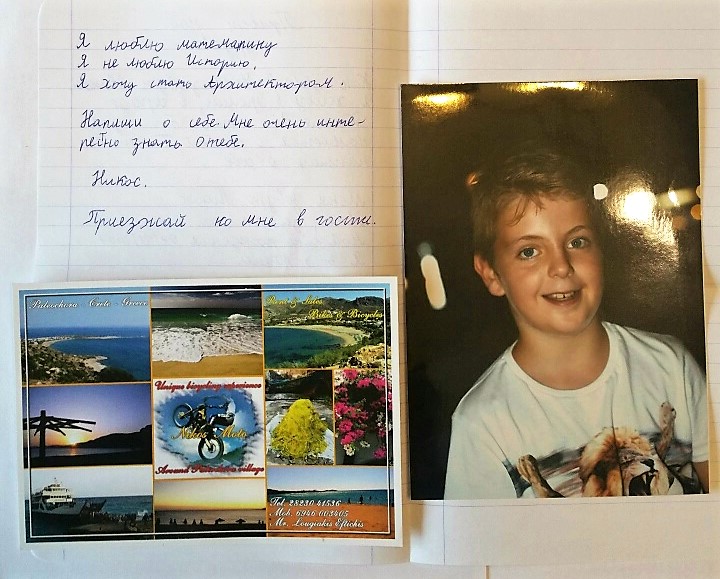 Я люблю математику
Я не люблю Историю.
Я хочу стать Архитектором.
Напиши о себе. Мне очень инте-
ресно знать о тебе.
Никос.
Приезжай ко мне в гости.
Paleochora - Crete - Greece
Rent & Sales
Bikes & Bicycles
Unique bicycling experience
Nikos Moto
Around Paleochora village
Tel. 28230 41536
Mob. 6946 003405
Mr. Lougiakis Eftichis